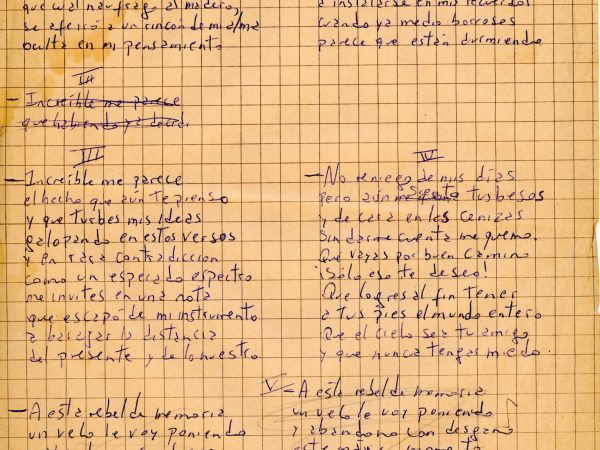 que cual naufrago al madero,
se aferró a un rincón de mi alma
oculta en mi pensamiento
a instalarse en mis recuerdos
cuando ya medio borrosos
parece que están durmiendo
III
- Increíble me parece
que habiendo ya
III
- Increíble me parece
el hecho que aún te pienso
y que turbes mis ideas
galopando en estos versos
y en rara contradicción
como un esperado espectro
me invites en una nota
que escapó de mi instrumento
a barajar la distancia
del presente y de lo nuestro
IV
- No reniego de mis días
pero aún me siento tus besos
y de cara en las cenizas
sin darme cuenta me quemo.
Que vayas por buen camino
¡Sólo eso te deseo!
Que logres al fin tener
a tus pies el mundo entero
Que el cielo sea tu amigo
y que nunca tengas miedo.
- A esta rebelde memoria
un velo le voy poniendo
V - A esta rebelde memoria
un velo le voy poniendo
y abandono con desgano